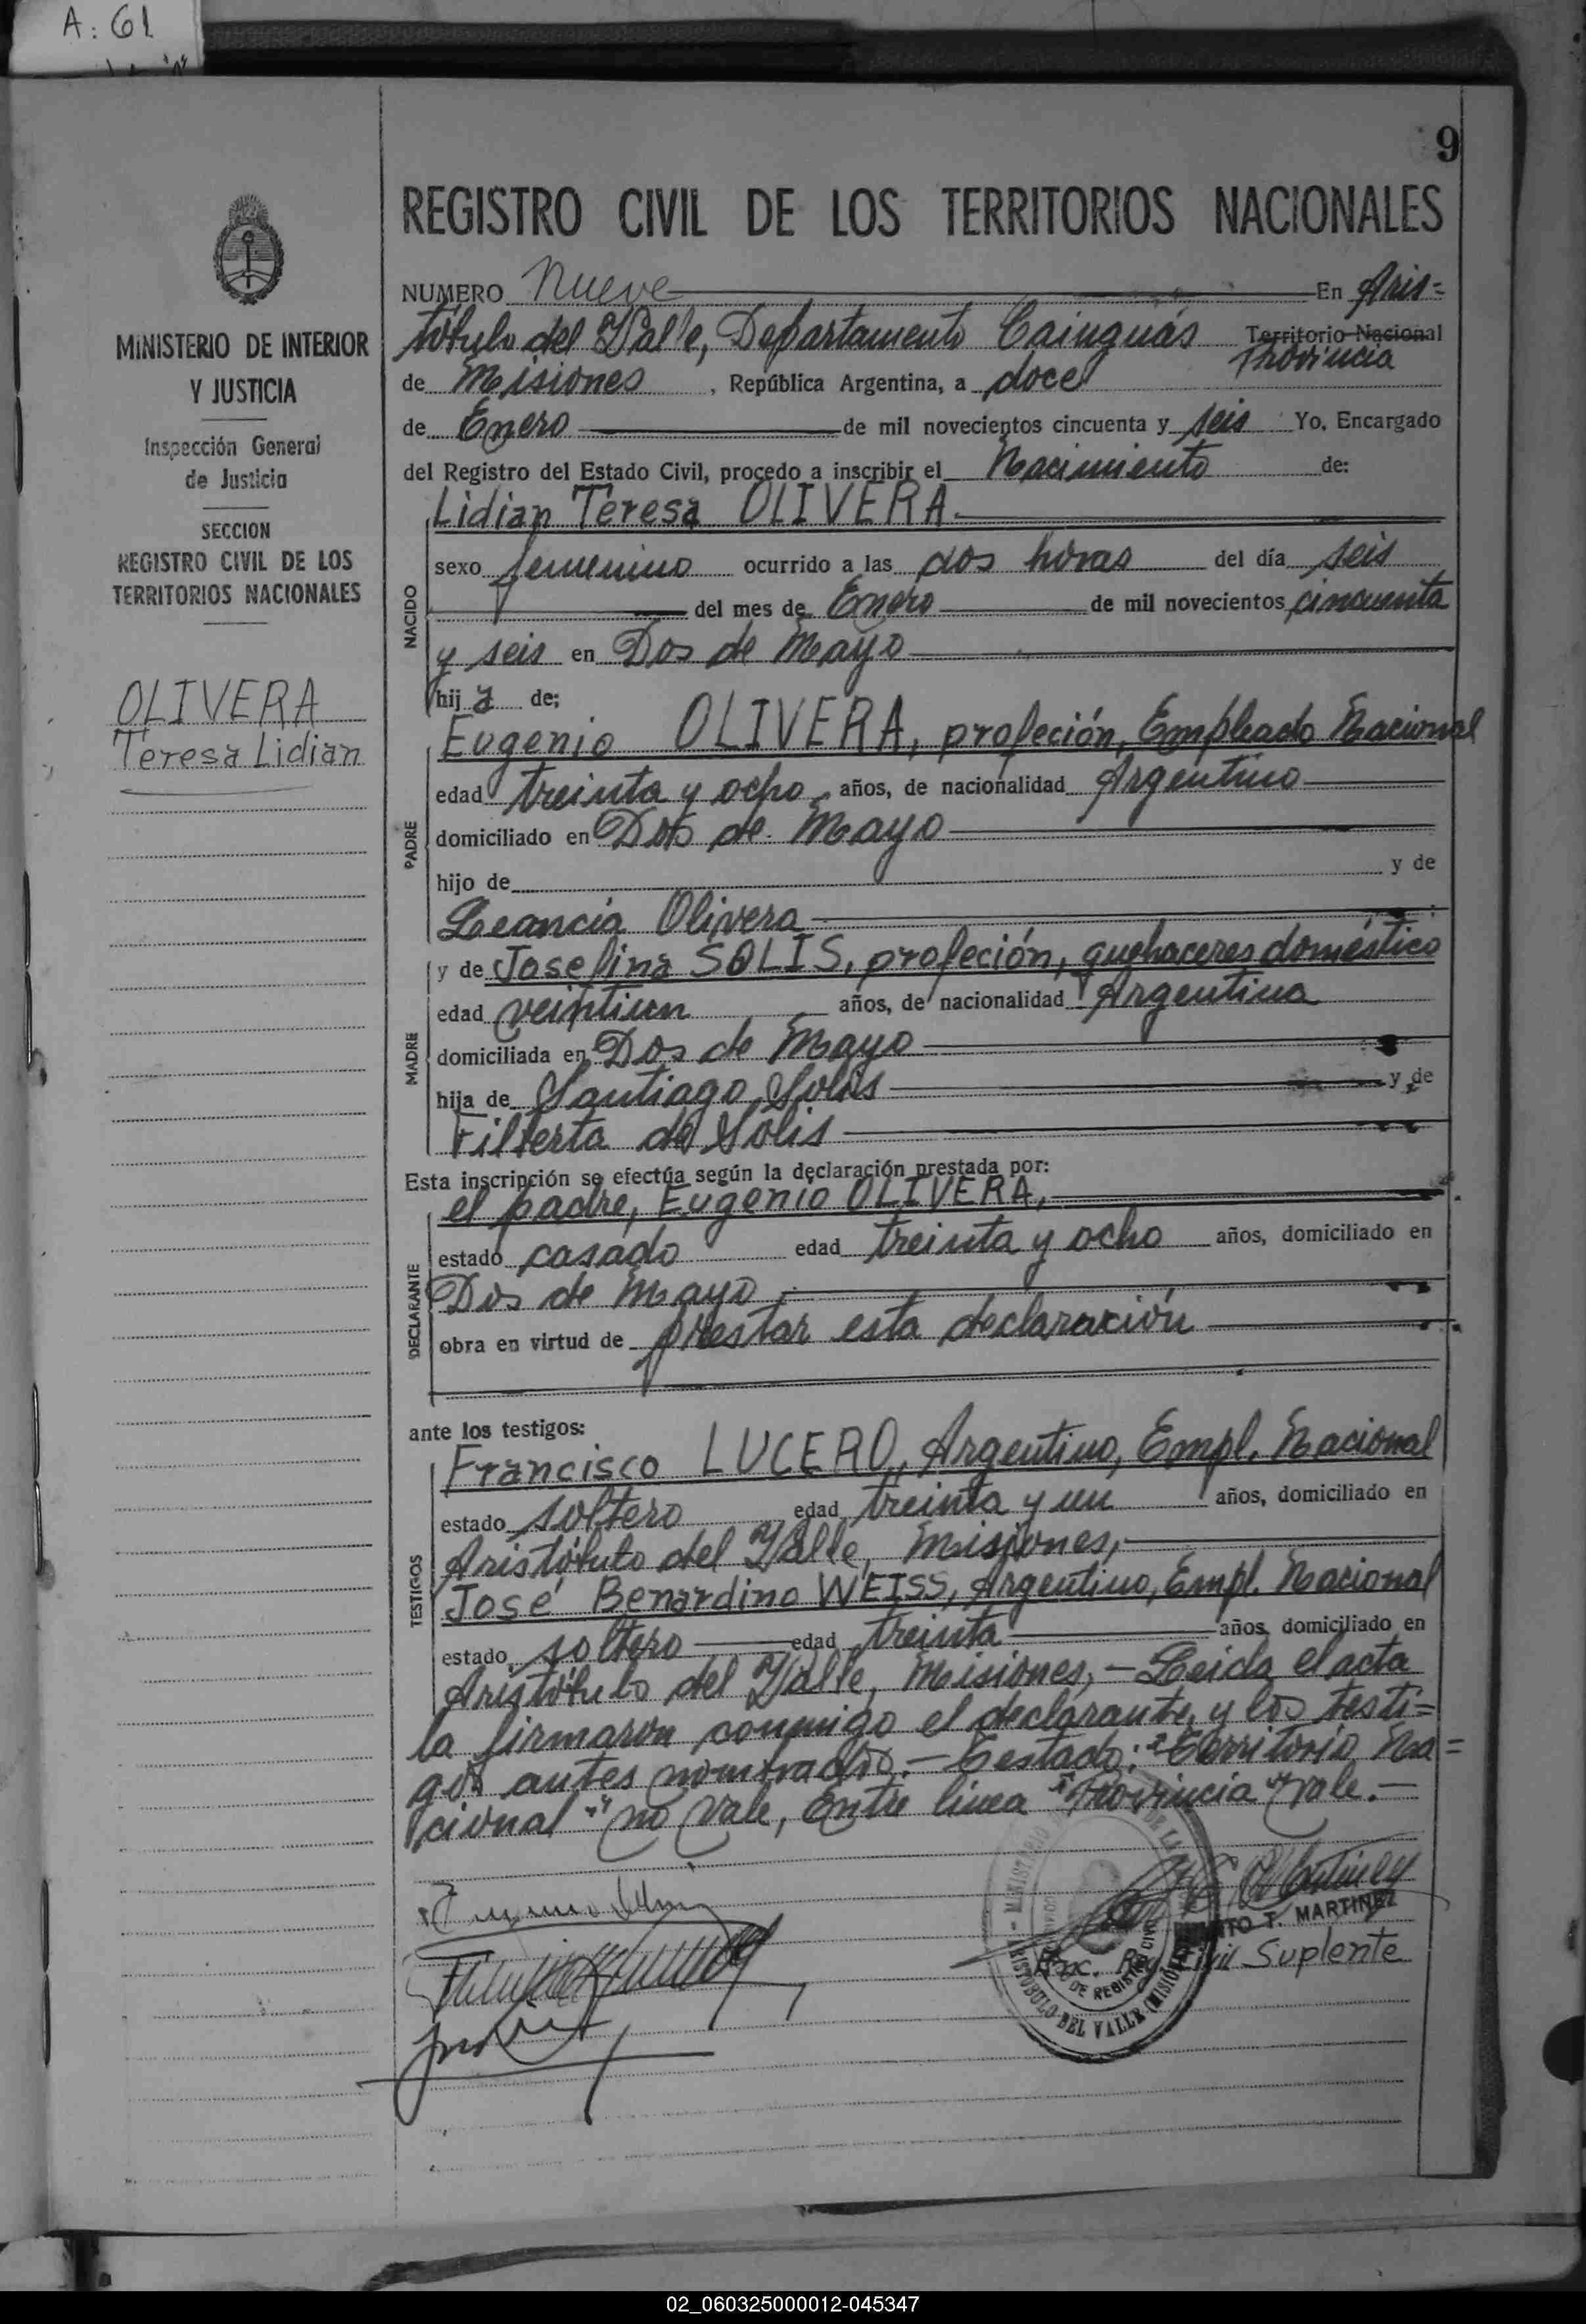 A: 61
9
REGISTRO CIVIL DE LOS TERRITORIOS NACIONALES
MINISTERIO DE INTERIOR
Y JUSTICIA
Inspección General
de Justicia
SECCION
REGISTRO CIVIL DE LOS
TERRITORIOS NACIONALES
OLIVERA
Teresa Lidian
NUMERO Nueve En Aris=
tóbulo del Valle, Departamento Cainguás Territorio Nacional
Provincia
de Misiones, República Argentina, a doce
de Enero de mil novecientos cincuenta y seis Yo, Encargado
del Registro del Estado Civil, procedo a inscribir el Nacimiento de:
NACIDO
Lidian Teresa OLIVERA
sexo femenino ocurrido a las dos horas del día seis
del mes de Enero de mil novecientos cincuenta
y seis en Dos de Mayo
hij a de:
PADRE
Eugenio OLIVERA, profeción, Empleado Nacional
edad treinta y ocho años, de nacionalidad Argentino
domiciliado en Dos de Mayo
hijo de y de
Leancia Olivera
MADRE
y de Josefina SOLIS, profeción, quehaceres doméstico
edad veintiun años, de nacionalidad Argentina
domiciliada en Dos de Mayo
hija de Santiago Solis y de
Filberta de Solis
Esta inscripción se efectúa según la declaración prestada por:
DECLARANTE
el padre, Eugenio OLIVERA,
estado casado edad treinta y ocho años, domiciliado en
Dos de Mayo
obra en virtud de prestar esta declaración
ante los testigos:
TESTIGOS
Francisco LUCERO, Argentino, Empl. Nacional
estado soltero edad treinta y un años, domiciliado en
Aristóbulo del Valle, Misiones,
José Benardino WEISS, Argentino, Empl. Nacional
estado soltero edad treinta años, domiciliado en
Aristóbulo del Valle, Misiones, - Leida el acta
la firmaron conmigo el declarante y los testi=
gos antes nombrados. - Testado: "Territorio Na=
cional" no vale, Entre linea "Provincia" vale. -
T. MARTINEZ
Enc. Reg. Civil Suplente
ARISTOBULO DEL VALLE (MISIONES)
02_060325000012-045347